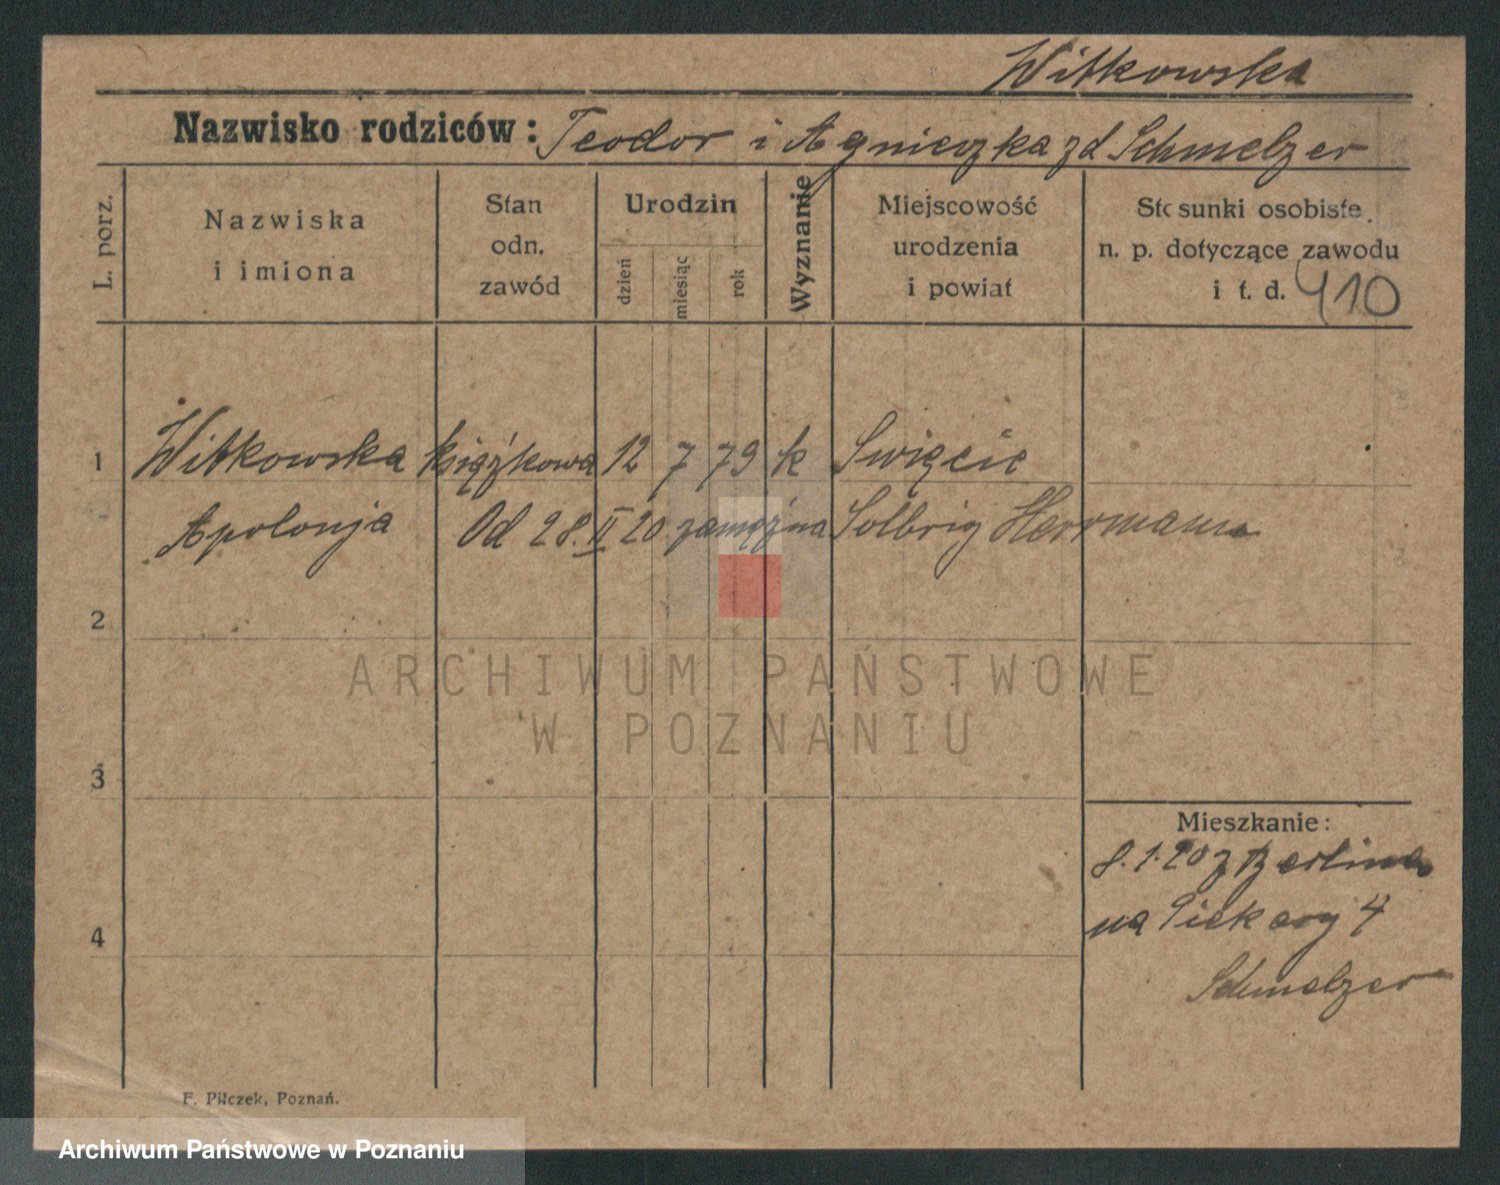 Witkowska
Nazwisko rodziców: Teodor i Agnieszka zd Schmelzer
L. porz.
Nazwiska
i imiona
Stan
odn.
zawód
Urodzin
dzień
miesiąc
rok
Wyznanie
Miejscowość
urodzenia
i powiat
Stosunki osobiste
n. p. dotyczące zawodu
i t. d. 410
1 Witkowska książkowa 12 7 79 k Swięcic
Apolonja Od 28.II 20 zamężna Solbrig Herrmann
2
3
4
Mieszkanie:
8.1.20 z Berlina
na Piekary 4
Schmelzer
F. Pilczek, Poznań.
ARCHIWUM PAŃSTWOWE
W POZNANIU
Archiwum Państwowe w Poznaniu